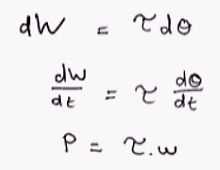 dW = τdθ
dw/dt = τ dθ/dt
P = τ.w